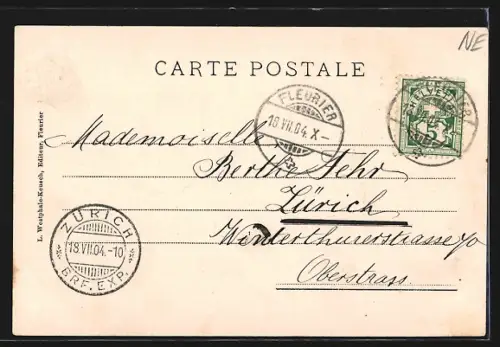 NE
CARTE POSTALE
HELVETIA
5
FLEURIER
18.VII.04.X-
Mademoiselle
Berthe Fehr
Zürich
Winterthurerstrasse 70
Oberstrass.
ZÜRICH
18.VII.04.-10
BRF. EXP.
L. Westphale-Keusch, Editeur, Fleurier